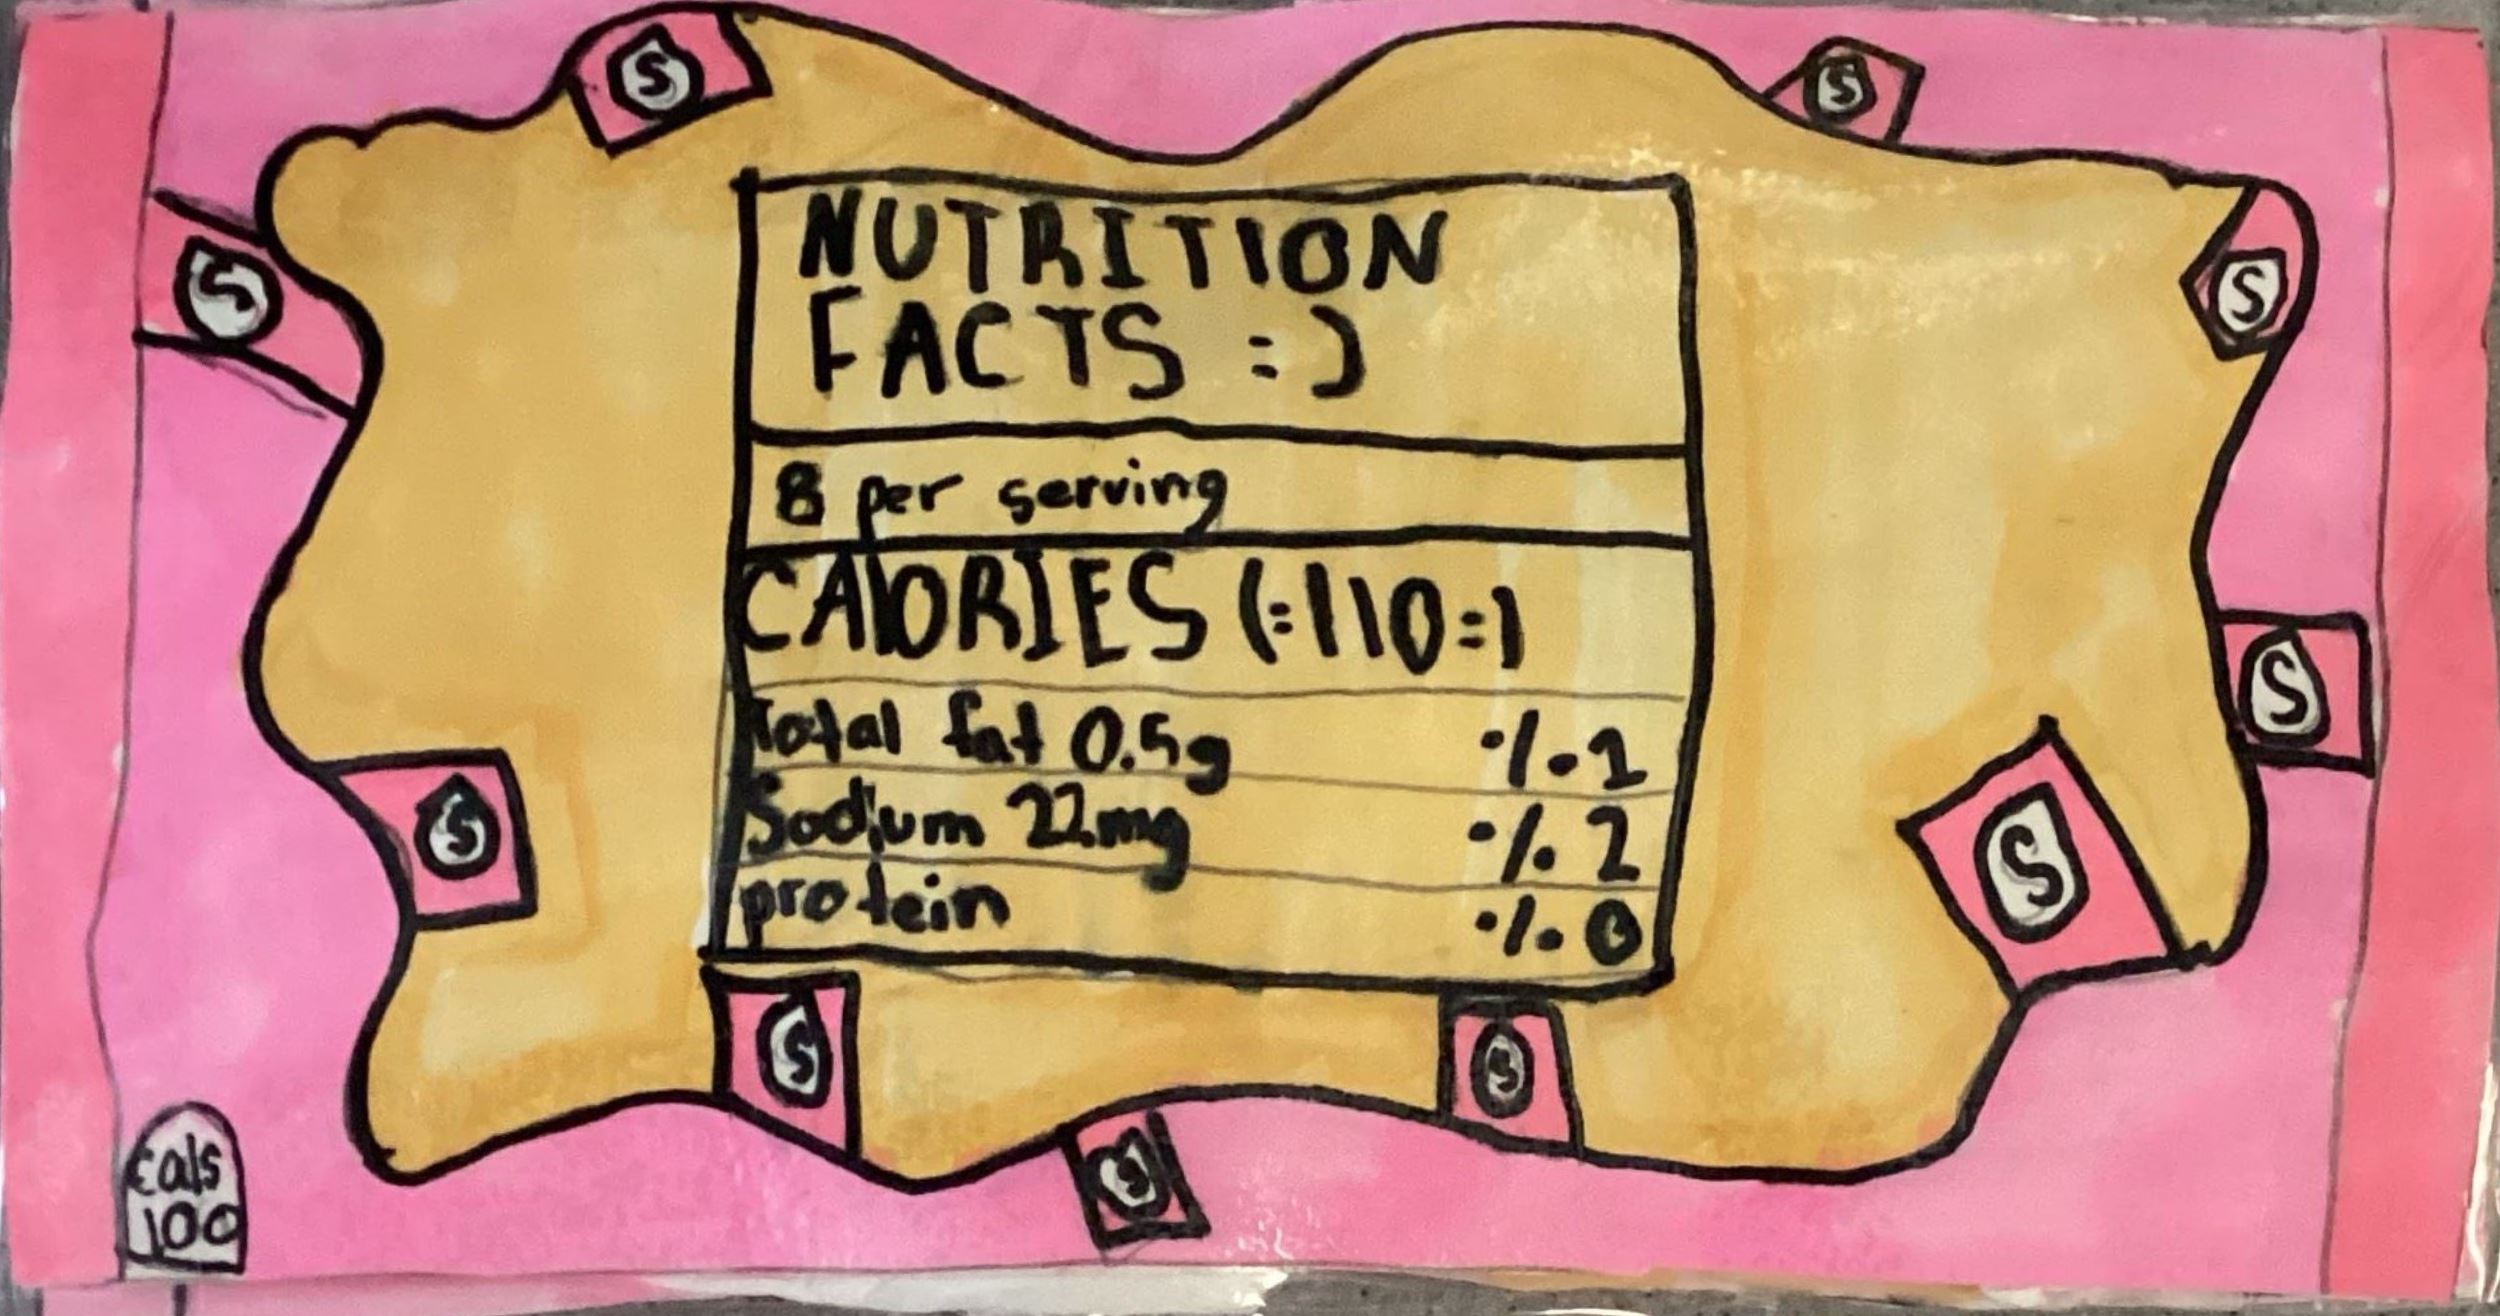 S
S
S
S
NUTRITION
FACTS =)
8 per serving
CALORIES (=110=)
Total fat 0.5g %1
Sodium 22mg %2
protein %0
S
S
S
S
S
S
cals
100